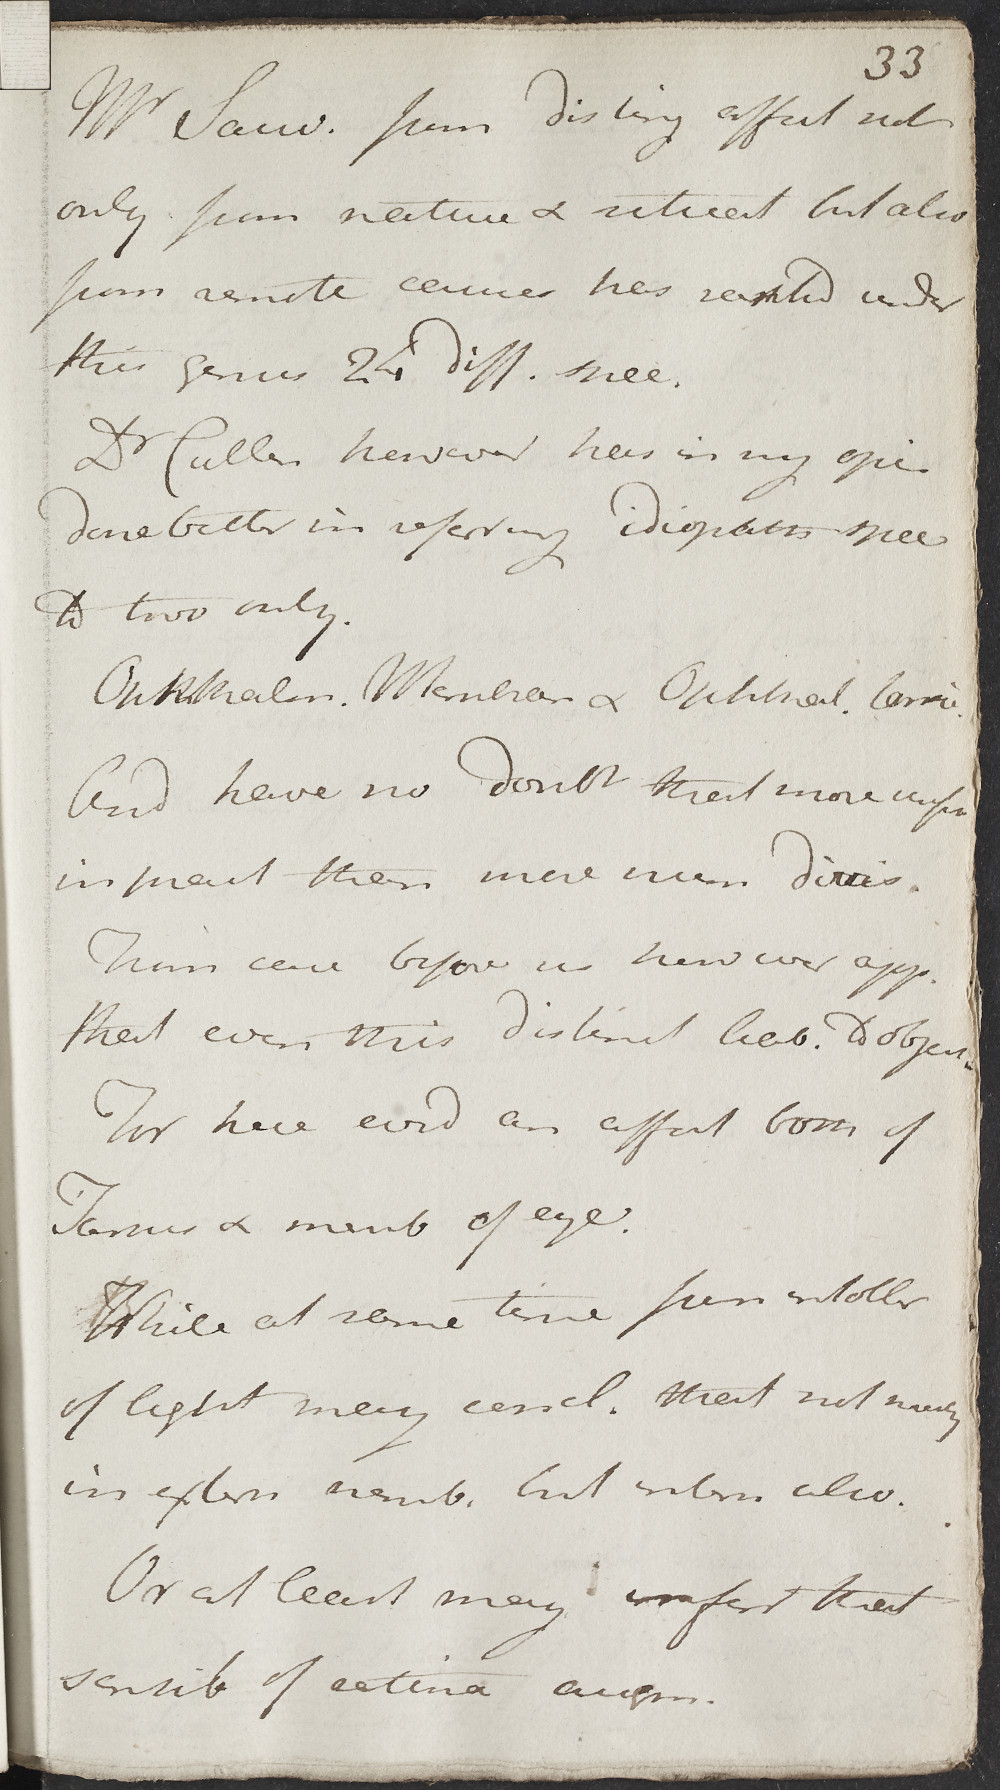 33
Mr Sauv. from disting affect not
only from nature & situat but also
from remote causes has ranked under
this genus 24 diff. spec.
Dr Cullen however has in my opin
done better in referring idiopath spec
to two only.
Ophthalm. Membran & Ophthal. tarsi.
And have no doubt that more usefu
in pract than more num divis.
From case before us however app.
that even this distinct liab. to object.
For here evid an affect both of
Tarsus & memb of eye.
While at same time from intoller
of light may concl. that not merely
in extern memb. but intern also.
Or at least may infer that
sensib of retina augm.